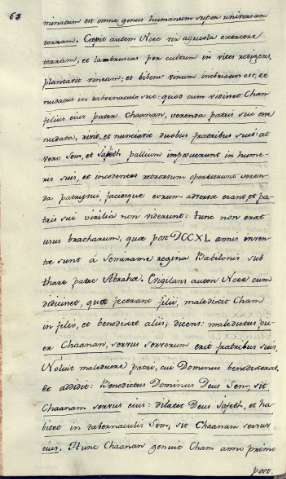 63
minatum est omne genus humanum super universam
terram. Cepit autem Noee vir agricola exercere
terram, et lambruscas per culturam in vites redigens,
plantavit vineam; et bibens vinum inebriatus est, et
nudatus in tabernaculo suo: quod cum vidisset Cham
filius eius pater Chaanan, verenda patris sui esse
nudata, risit, et nunciavit duobus fratribus suis: at
vero Sem, et Jafeth pallium imposuerunt in hume-
ris suis, et incedentes retrorsum operuerunt veren-
da patris sui, faciesque eorum adversae erant, et pa-
tris sui virilia non viderunt: tunc non erat
usus bracharum, quae post DCCXL annis inven-
te sunt à Semirame regina Babilonis sub
thare patre Abrahae. Evigilans autem Noee cum
didicisset, quae fecerant filii, maledixit Cham
in filio, et benedixit aliis, dicens: maledictus pu-
er Chaanan, servus servorum erit fratribus suis,
Noluit maledicere patri, cui Dominus benedixerat,
et addidit: Benedictus Dominus Deus Sem, sit
Chaanan servus eius: dilatet Deus Jafeth, et ha-
bitet in tabernaculis Sem, sit Chaanan servus
eius. Hunc Chaanan genuit Cham anno primo
post